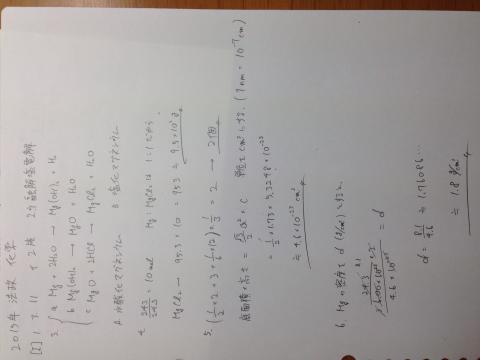 2013年 法政 化学
[I] 1. ア 11 イ 2族 ウ 融解塩電解
2. a Mg + 2H2O → Mg(OH)2 + H2
b Mg(OH)2 → MgO + H2O
c MgO + 2HCl → MgCl2 + H2O
3. A 水酸化マグネシウム B 塩化マグネシウム
4. 243/24.3 = 10 mol Mg : MgCl2 は 1:1 だから
MgCl2 → 95.3 × 10 = 953 ≒ 9.5×10² g
5. (1/2 × 2 + 3 + 1/6 × 12) × 1/3 = 2 → 2個
底面積 × 高さ = √3/2 a² × c 単位を cm³ にする. (1nm = 10⁻⁷ cm)
= 1/2 × 1.73 × 5.3248 × 10⁻²³
≒ 4.6 × 10⁻²³ cm³
6. Mgの密度を d (g/cm³) とすると
= d
4.6 × 10⁻²³
d = 8.1/4.6 ≒ 1.76086…
≒ 1.8 g/cm³